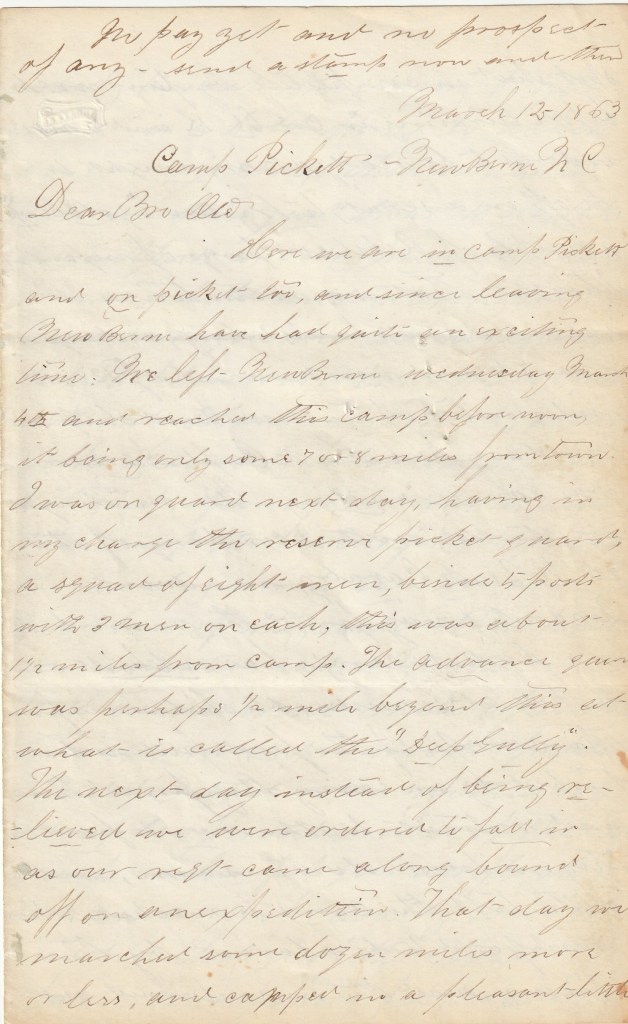 No pay yet and no prospect
of any - send a stamp now and then
March 12 1863
Camp Pickett - New Berne N C
Dear Bro Old
Here we are in camp Pickett
and on picket too, and since leaving
New Berne have had quite an exciting
time. We left New Berne wednesday March
4th and reached this camp before noon,
it being only some 7 or 8 miles from town.
I was on guard next day, having in
my charge the reserve picket guard,
a squad of eight men, beside 5 posts
with 3 men on each, this was about
1 1/2 miles from camp. The advance guar
was perhaps 1/2 mile beyond this at
what is called the "Deep Gully".
The next day instead of being re-
-lieved we were ordered to fall in
as our regt came along bound
off on an expedition. That day we
marched some dozen miles more
or less, and camped in a pleasant little